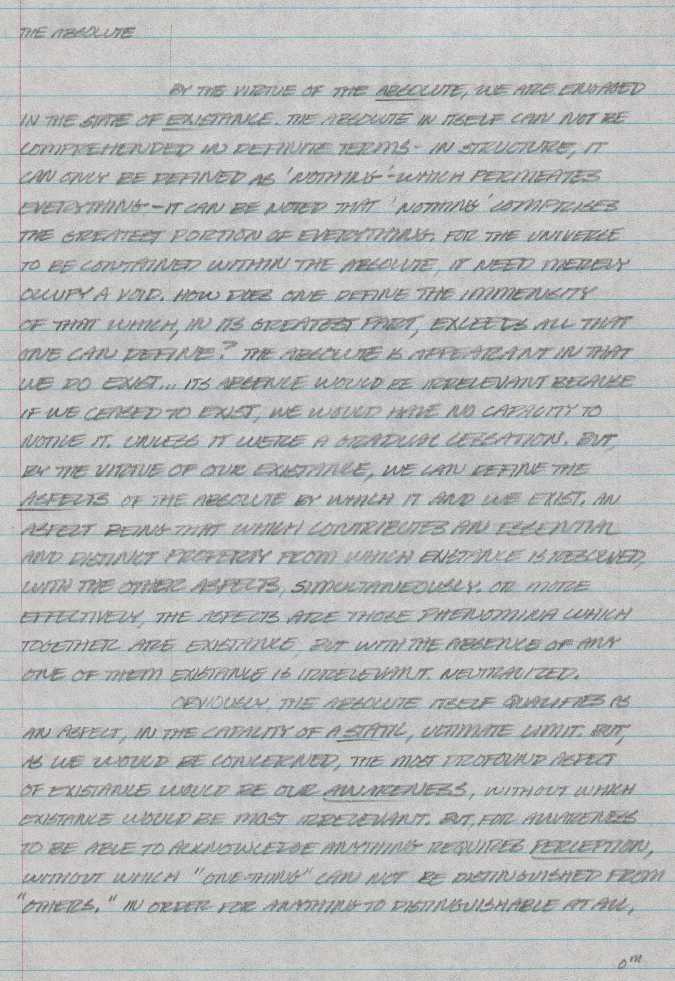 THE ABSOLUTE
BY THE VIRTUE OF THE ABSOLUTE, WE ARE ENGAGED
IN THE STATE OF EXISTANCE. THE ABSOLUTE IN ITSELF CAN NOT BE
COMPREHENDED IN DEFINITE TERMS - IN STRUCTURE, IT
CAN ONLY BE DEFINED AS 'NOTHING' - WHICH PERMEATES
EVERYTHING - IT CAN BE NOTED THAT 'NOTHING' COMPRISES
THE GREATEST PORTION OF EVERYTHING. FOR THE UNIVERSE
TO BE CONTAINED WITHIN THE ABSOLUTE, IT NEED MERELY
OCCUPY A VOID. HOW DOES ONE DEFINE THE IMMENSITY
OF THAT WHICH, IN ITS GREATEST PART, EXCEEDS ALL THAT
ONE CAN DEFINE? THE ABSOLUTE IS APPEARANT IN THAT
WE DO EXIST... ITS ABSENCE WOULD BE IRRELEVANT BECAUSE
IF WE CEASED TO EXIST, WE WOULD HAVE NO CAPACITY TO
NOTICE IT. UNLESS IT WERE A GRADUAL CESSATION. BUT,
BY THE VIRTUE OF OUR EXISTANCE, WE CAN DEFINE THE
ASPECTS OF THE ABSOLUTE BY WHICH IT AND WE EXIST. AN
ASPECT BEING THAT WHICH CONTRIBUTES AN ESSENTIAL
AND DISTINCT PROPERTY FROM WHICH EXISTANCE IS RESOLVED,
WITH THE OTHER ASPECTS, SIMULTANEOUSLY. OR MORE
EFFECTIVELY, THE ASPECTS ARE THOSE PHENOMINA WHICH
TOGETHER ARE EXISTANCE, BUT WITH THE ABSENCE OF ANY
ONE OF THEM EXISTANCE IS IRRELEVANT. NEUTRALIZED.
OBVIOUSLY, THE ABSOLUTE ITSELF QUALIFIES AS
AN ASPECT, IN THE CAPACITY OF A STATIC, ULTIMATE LIMIT. BUT,
AS WE WOULD BE CONCERNED, THE MOST PROFOUND ASPECT
OF EXISTANCE WOULD BE OUR AWARENESS, WITHOUT WHICH
EXISTANCE WOULD BE MOST IRRELEVANT. BUT, FOR AWARENESS
TO BE ABLE TO ACKNOWLEDGE ANYTHING REQUIRES PERCEPTION,
WITHOUT WHICH "ONE-THING" CAN NOT BE DISTINGUISHED FROM
"OTHERS." IN ORDER FOR ANYTHING TO DISTINGUISHABLE AT ALL,